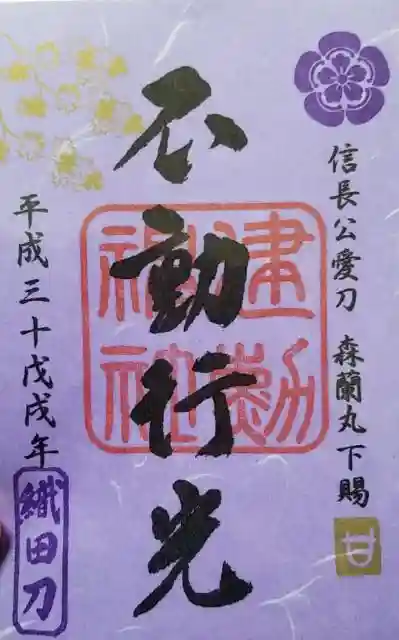 信長公愛刀 森蘭丸下賜
甘
不動行光
建勲神社
平成三十戊戌年
織田刀